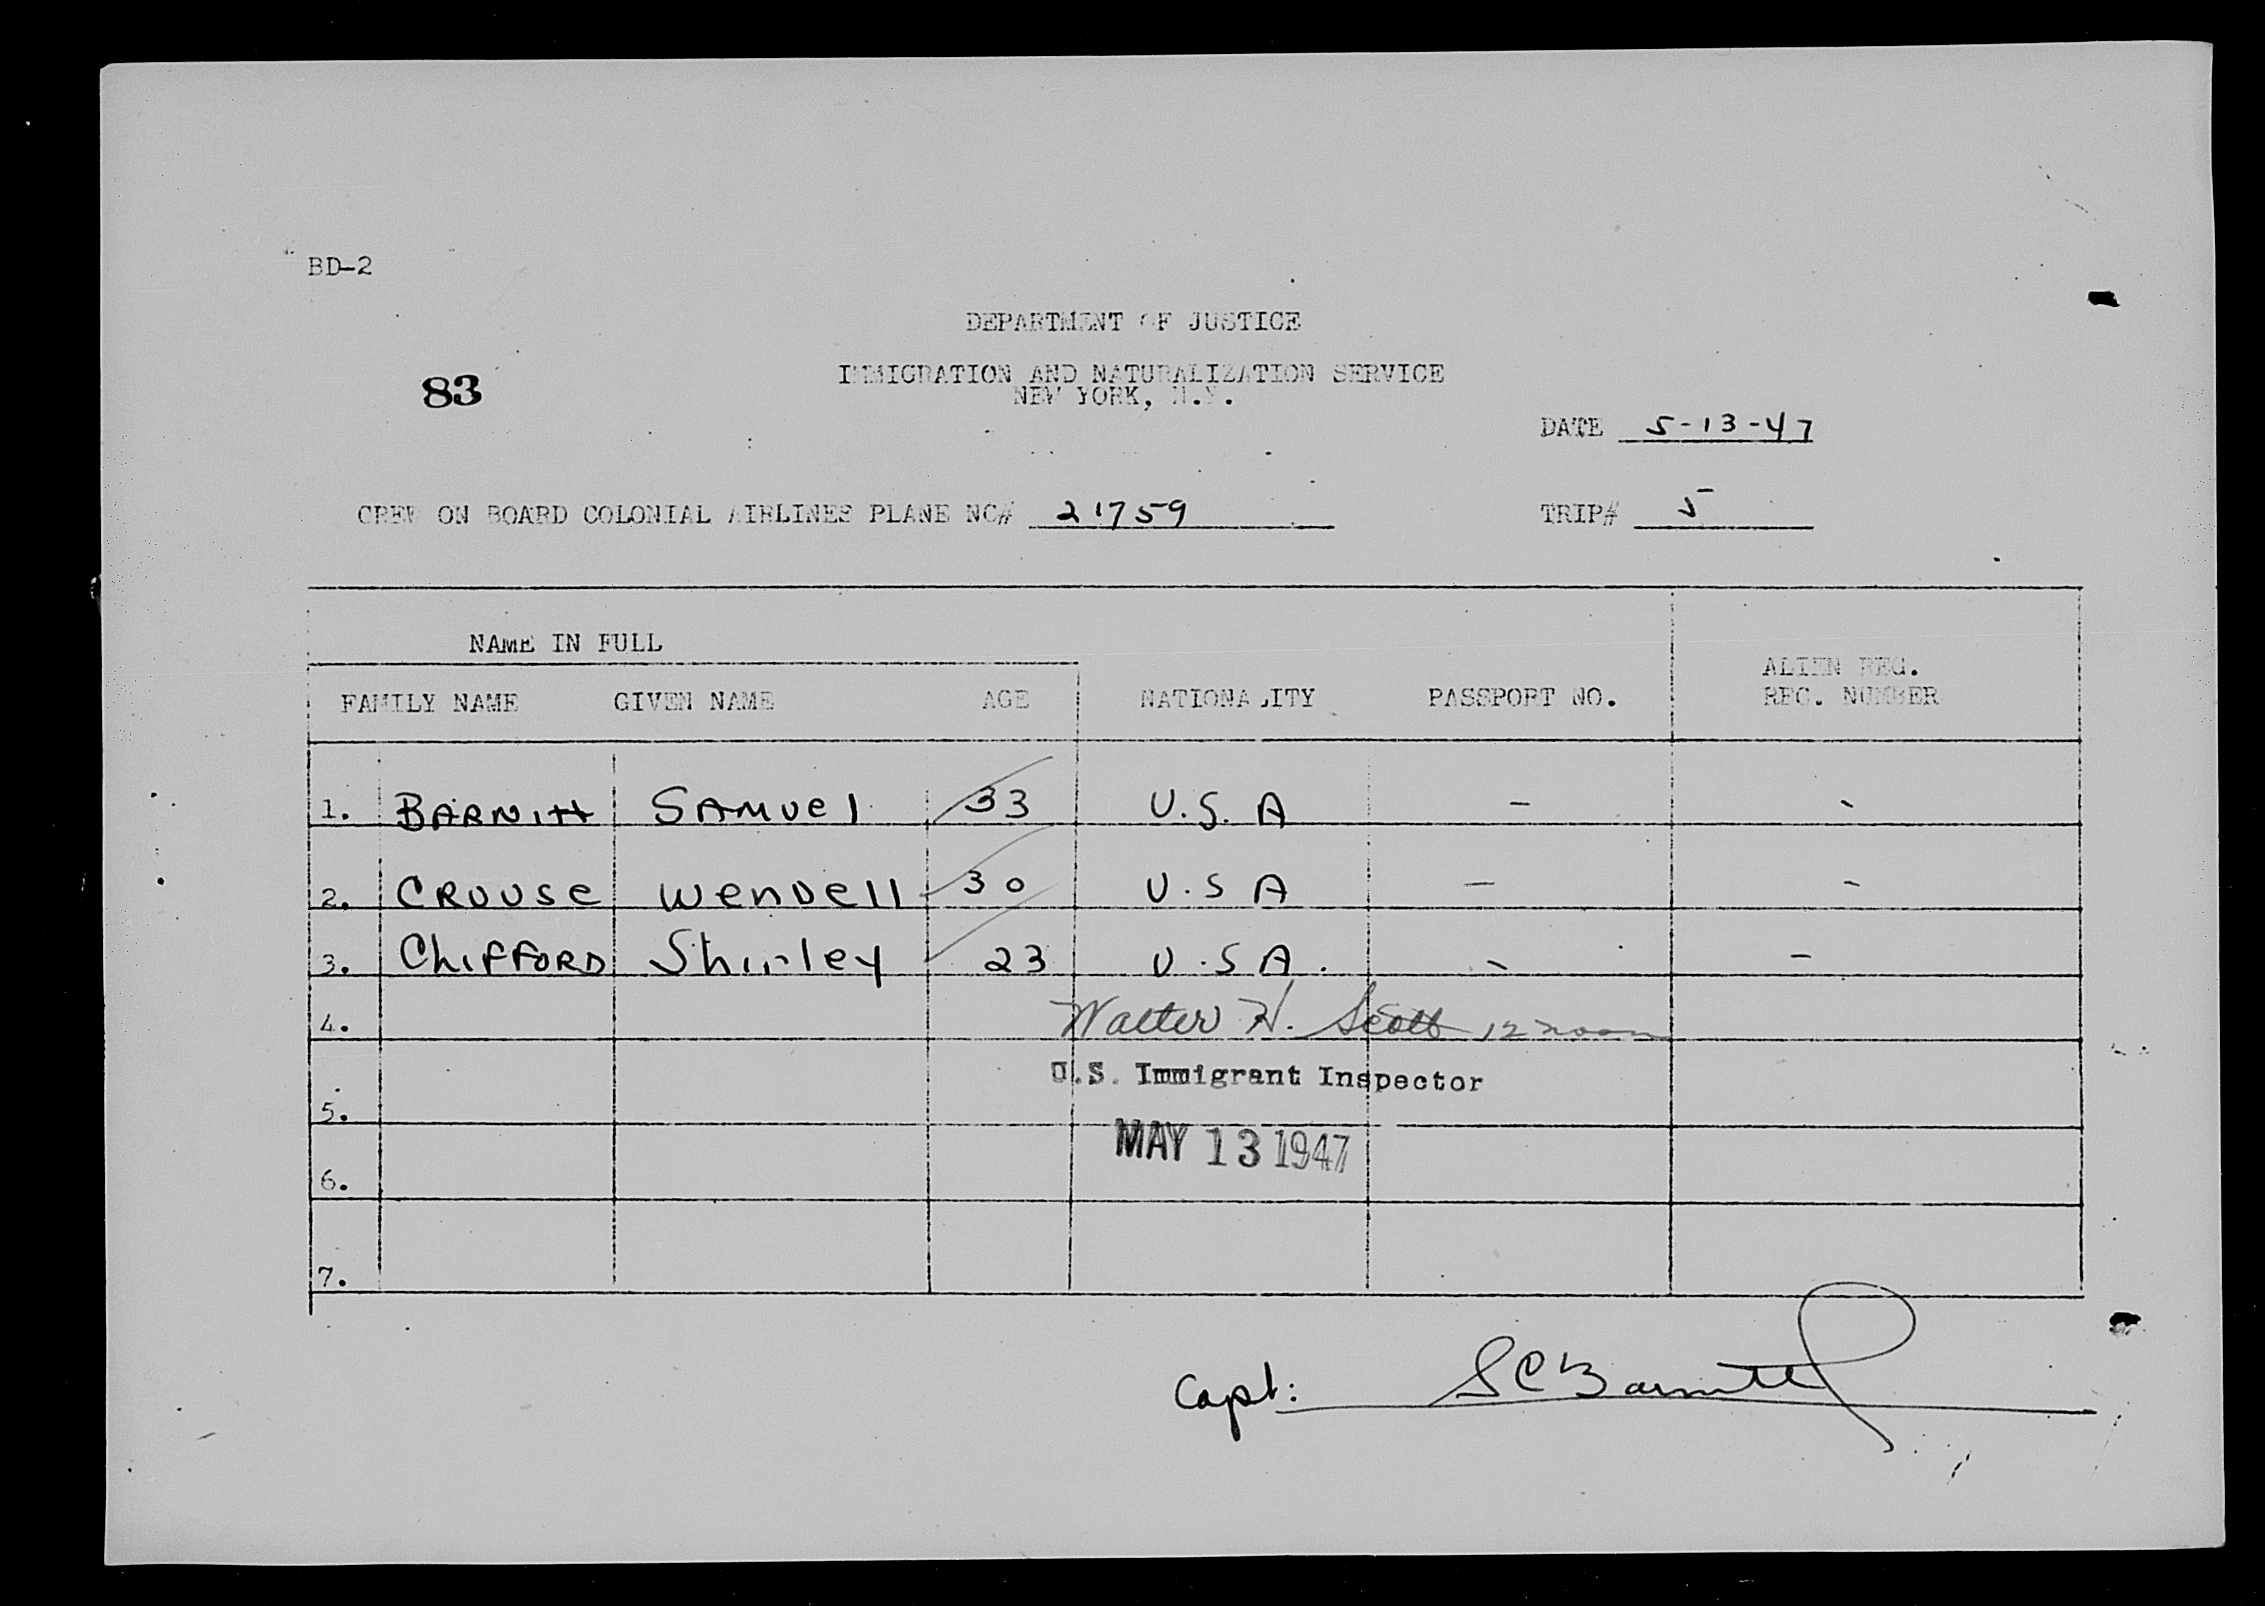 BD-2
DEPARTMENT OF JUSTICE
83
IMMIGRATION AND NATURALIZATION SERVICE
NEW YORK, N.Y.
DATE 5-13-47
CREW ON BOARD COLONIAL AIRLINES PLANE NC# 21759 TRIP# 5
NAME IN FULL
ALIEN REG.
FAMILY NAME GIVEN NAME AGE NATIONALITY PASSPORT NO. REC. NUMBER
1. BARNITT SAMUEL 33 U.S.A - -
2. CROUSE WENDELL 30 U.S A - -
3. CLIFFORD Shirley 23 U.S A. - -
4. Walter H. Scott 12 noon
U.S. Immigrant Inspector
5.
MAY 13 1947
6.
7.
Capt: S C Barnitt